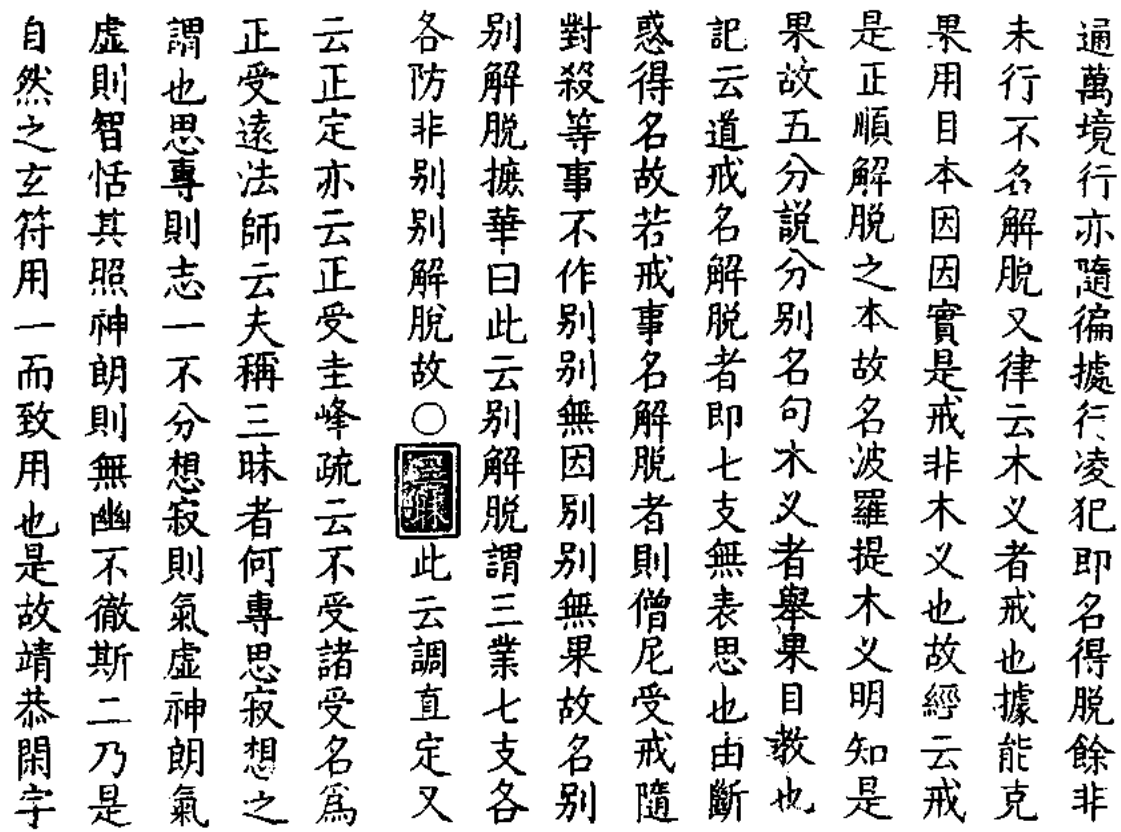 通萬境行亦隨徧據行凌犯即名得脫餘非
未行不名解脫又律云木义者戒也據能克
果用目本因因實是戒非木义也故經云戒
是正順解脫之本故名波羅提木义明知是
果故五分說分別名句木义者舉果目教也
記云道戒名解脫者即七支無表思也由斷
惑得名故若戒事名解脫者則僧尼受戒隨
對殺等事不作別別無因別別無果故名別
別解脫摭華曰此云別解脫謂三業七支各
各防非別別解脫故○三昧此云調直定又
云正定亦云正受圭峰疏云不受諸受名爲
正受遠法師云夫稱三昧者何專思寂想之
謂也思專則志一不分想寂則氣虛神朗氣
虛則智恬其照神朗則無幽不徹斯二乃是
自然之玄符用一而致用也是故靖恭閑宇